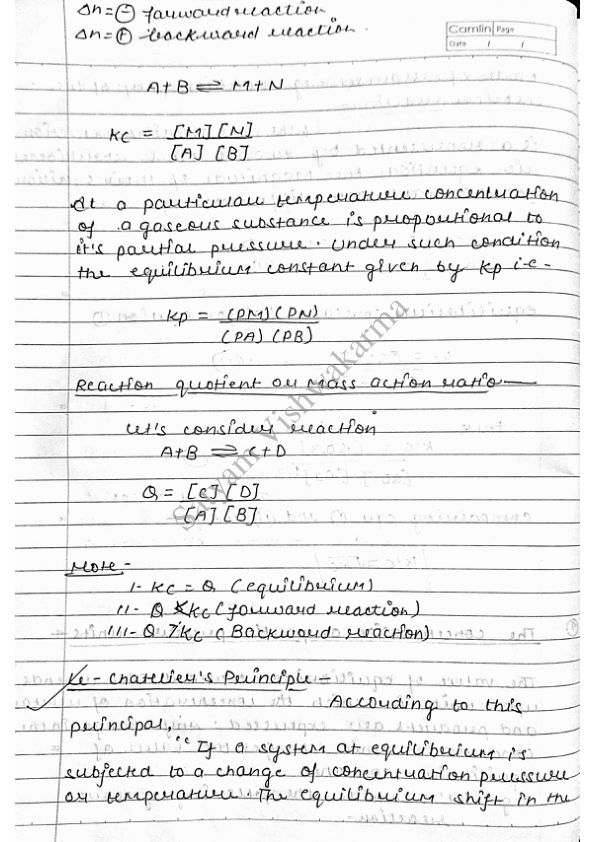 Δn = ⊖ forward reaction
Δn = ⊕ backward reaction.
Camlin Page
Date / /
A+B ⇌ M+N
Kc = [M][N]
[A] [B]
At a particular temperature concentration
of a gaseous substance is proportional to
it's partial pressure. Under such condition
the equilibrium constant given by Kp i.e-
Kp = (PM)(PN)
(PA)(PB)
Reaction quotient or Mass action ratio—
Let's consider reaction
A+B ⇌ C+D
Q = [C][D]
[A][B]
Satyam Vishwakarma
Note-
I- Kc = Q (equilibrium)
II- Q < Kc (forward reaction)
III- Q > Kc (Backward reaction)
Le-Chatelier's Principle-
According to this
principal,
"If a system at equilibrium is
subjected to a change of concentration pressure
or temperature The equilibrium shift in the